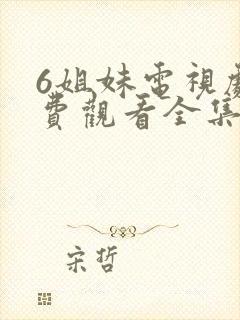 6姐妹電視劇
費觀看全集
宋哲